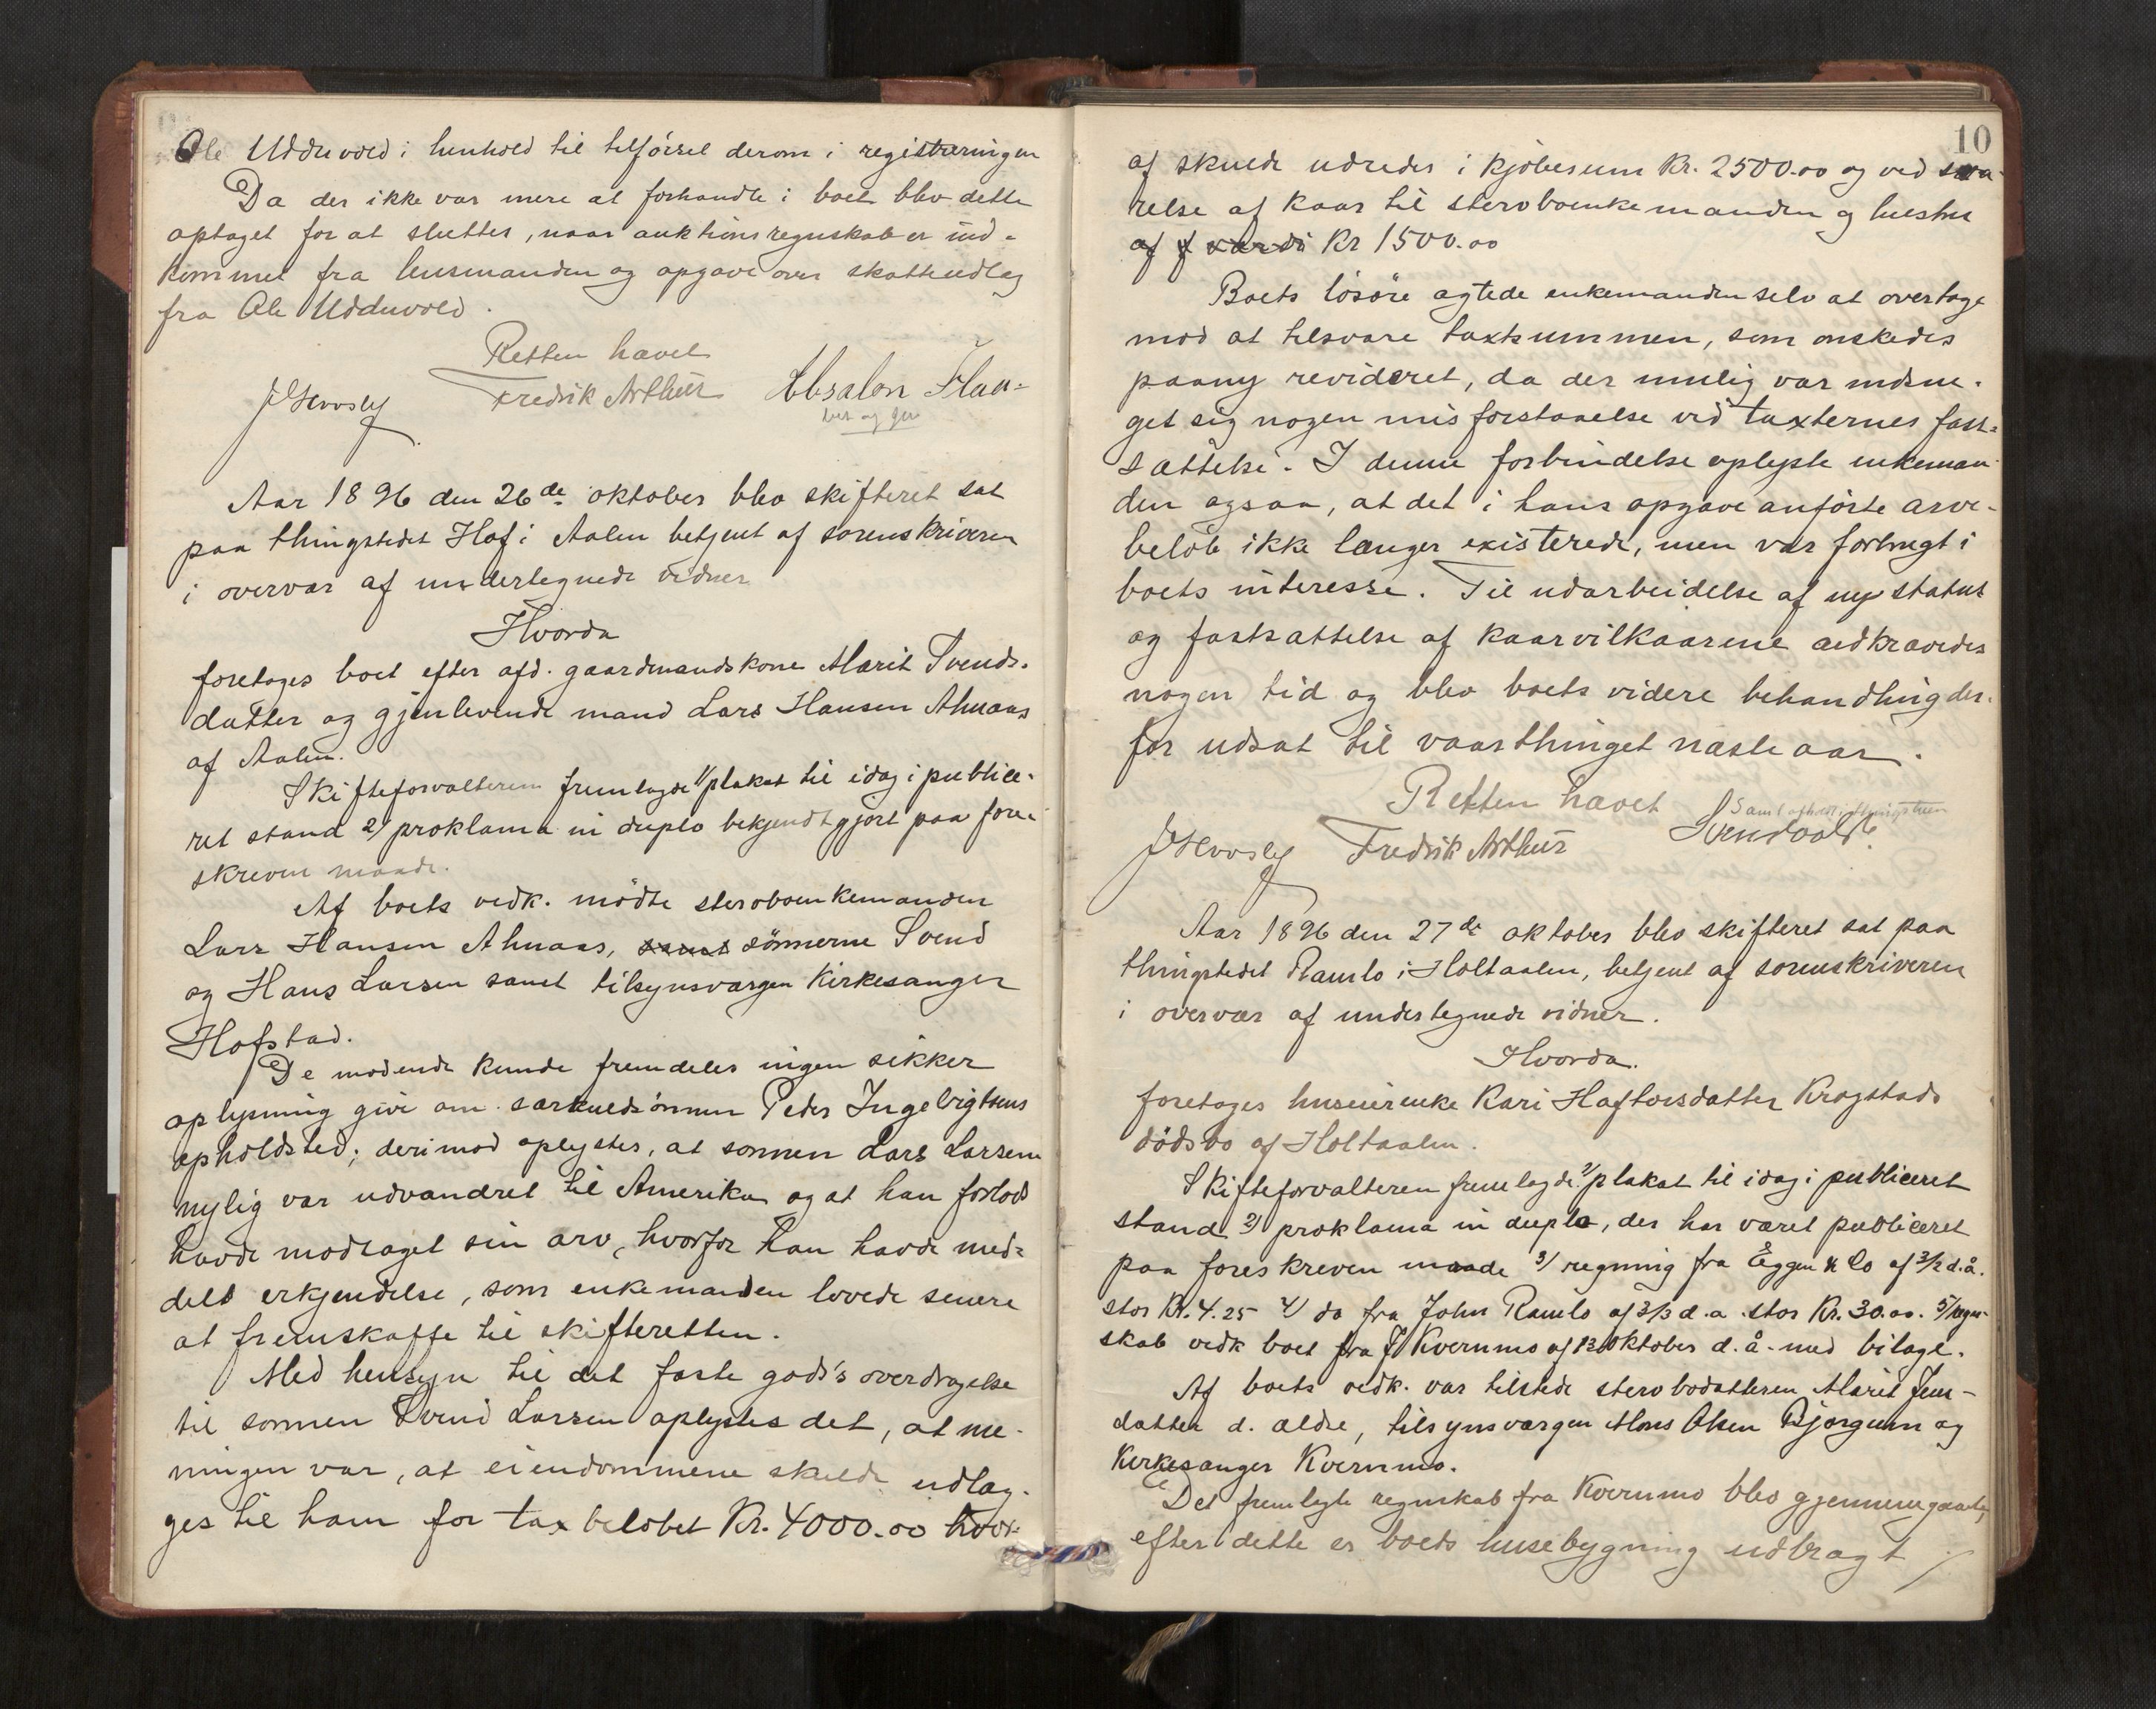 Ole Udduvold i henhold til tilførsel derom i registreringen
Da der ikke var mere at forhandle i boet blev dette
optaget for at sluttes, naar auktionsregnskab er ind-
kommet fra lensmanden og opgave over skatteudlæg
fra Ole Udduvold.
Retten hævet
Fredrik Arthur Absalon
Aar 1896 den 26de oktober blev skifteret sat
paa thingstedet Hof i Aalen betjent af sorenskriveren
i overvær af undertegnede vidner
Hvorda
foretages boet efter afd. gaardmandskone Marit Svends-
datter og gjenlevende mand Lars Hansen Almaas
af Aalen.
Skifteforvalteren fremlagde 1/ plakat til idag i publice-
ret stand 2/ proklama in duplo bekjendtgjort paa fore-
skreven maade.
Af boets vedk. mødte sterboenkemanden
Lars Hansen Almaas, samt sønnerne Svend
og Hans Larsen samt tilsynsværgen Kirkesanger
Hofstad.
De mødende kunde fremdeles ingen sikker
oplysning give om særkuldsønnen Peder Ingebrigtsens
opholdsted; derimod oplystes, at sønnen Lars Larsen
nylig var udvandret til Amerika og at han forlods
havde modtaget sin arv, hvorfor han havde med-
delt erkjendelse, som enkemanden lovede senere
at fremskaffe til skifteretten.
Med hensyn til det faste gods's overdragelse
til sønnen Svend Larsen oplystes det, at me-
ningen var, at eiendommene skulde udlæg-
ges til ham for taxbeløbet Kr. 4000.00 hvor-
10
af skulde udredes i kjøbesum Kr. 2500.00 og ved sva-
relse af kaar til sterboenkemanden og hustru
af værdi Kr 1500.00
Boets løsøre agtede enkemanden selv at overtage
mod at tilsvare taxtsummen, som ønskedes
paany revideret, da der mulig var indsne-
get sig nogen misforstaaelse ved taxternes fast-
sættelse. I denne forbindelse oplyste enkeman-
den ogsaa, at det i hans opgave anførte arve-
beløb ikke længer existerede, men var forbrugt i
boets interesse. Til udarbeidelse af ny status
og fastsættelse af kaarvilkaarene udkrævedes
nogen tid og blev boets videre behandling der-
for udsat til vaarthinget næste aar.
Retten hævet
Fredrik Arthur
Aar 1896 den 27de oktober blev skifteret sat paa
thingstedet Ramlo i Holtaalen, betjent af sorenskriveren
i overvær af undertegnede vidner.
Hvorda.
foretages huseierenke Kari Haftorsdatter Krogstads
dødsbo af Holtaalen.
Skifteforvalteren fremlagde 1/ plakat til idag i publiceret
stand 2/ proklama in duplo, der har været publiceret
paa foreskreven maade 3/ regning fra Eggen & Co af 3/2 d.å.
stor Kr. 4.25 4/ do fra John Ramlo af 3/3 d.a. stor Kr. 30.00. 5/ regn-
skab vedk boet fra J Kvernmo af 13 oktober d.å. med bilage.
Af boets vedk. var tilstede sterbodatteren Marit Jens-
datter d. ældre, tilsynsværgen Mons Olsen Bjørgum og
Kirkesanger Kvernmo.
Det fremlagte regnskab fra Kvernmo blev gjennemgaaet,
efter dette er boets husebygning udbragt